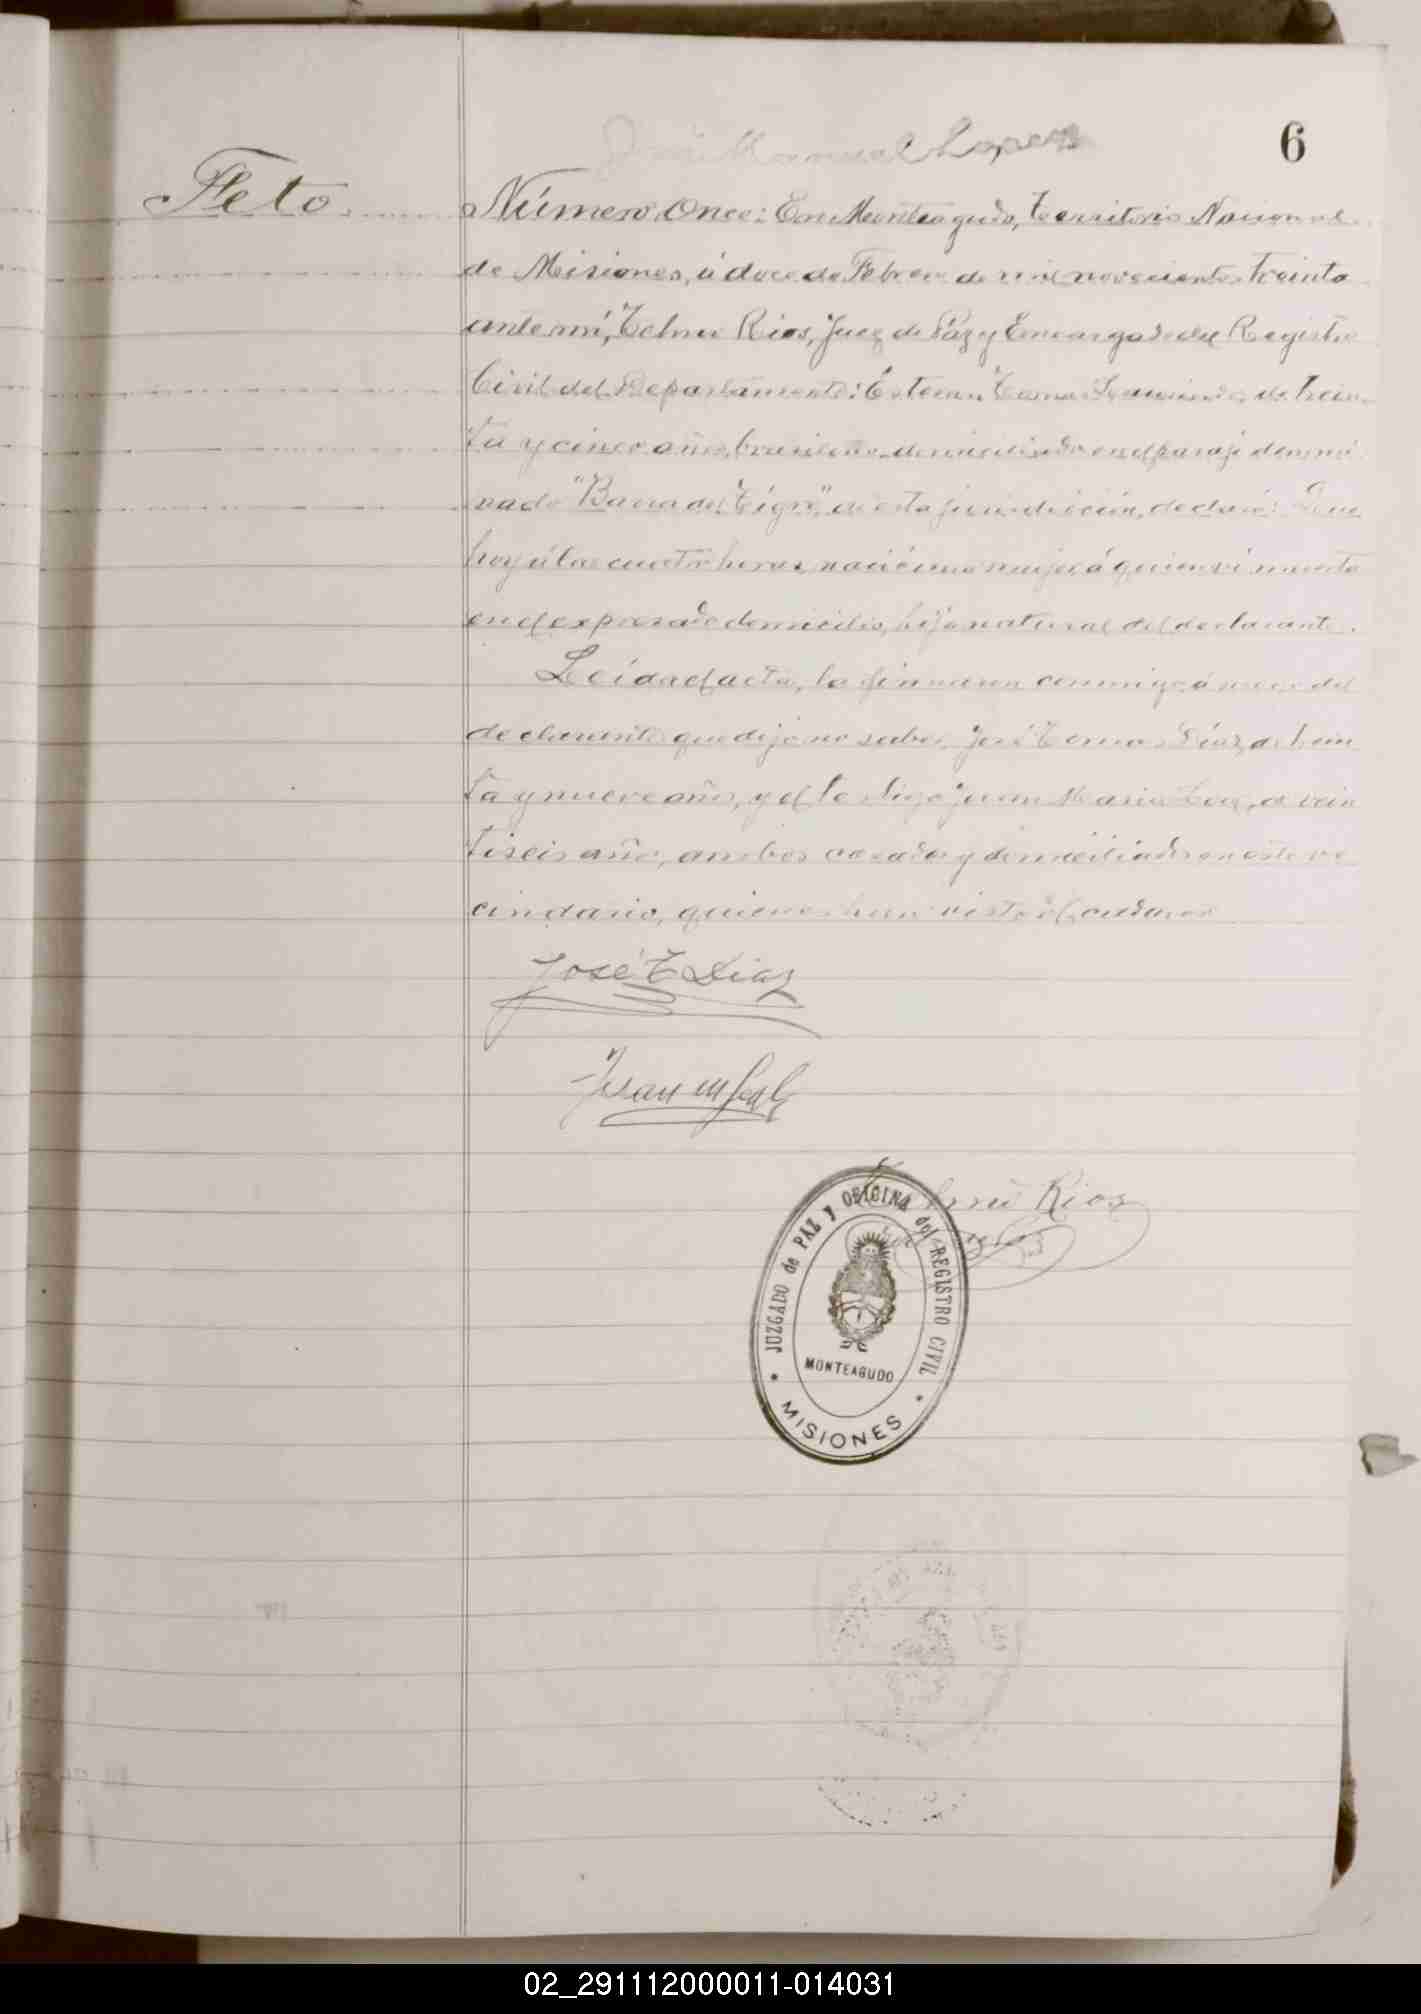 José Manuel Lopez
6
Feto
Número Once: En Monteagudo, Territorio Nacional
de Misiones, á doce de Febrero de mil novecientos treinta
ante mí, Telmo Rios, Juez de Paz y Encargado del Registro
Civil del Departamento: Estevan Tomas de trein-
ta y cinco años, brasileño, domiciliado en el paraje denomi
nado "Barra del Tigre", de esta jurisdicción, declaró: Que
hoy á las cuatro horas, nació una mujer, á quien vi muerta
en el expresado domicilio, hija natural del declarante.
Leída el acta, la firmaron conmigo, á ruego del
declarante que dijo no saber, José Tomas Díaz, de trein
ta y nueve años, y el testigo Juan Maria de vein
tiseis años, ambos casados y domiciliados en este ve
cindario, quienes han visto el cadaver
José T Dias
Juan M
Telmo Rios
JUZGADO de PAZ y OFICINA del REGISTRO CIVIL
DE
MONTEAGUDO
* MISIONES *
02_291112000011-014031